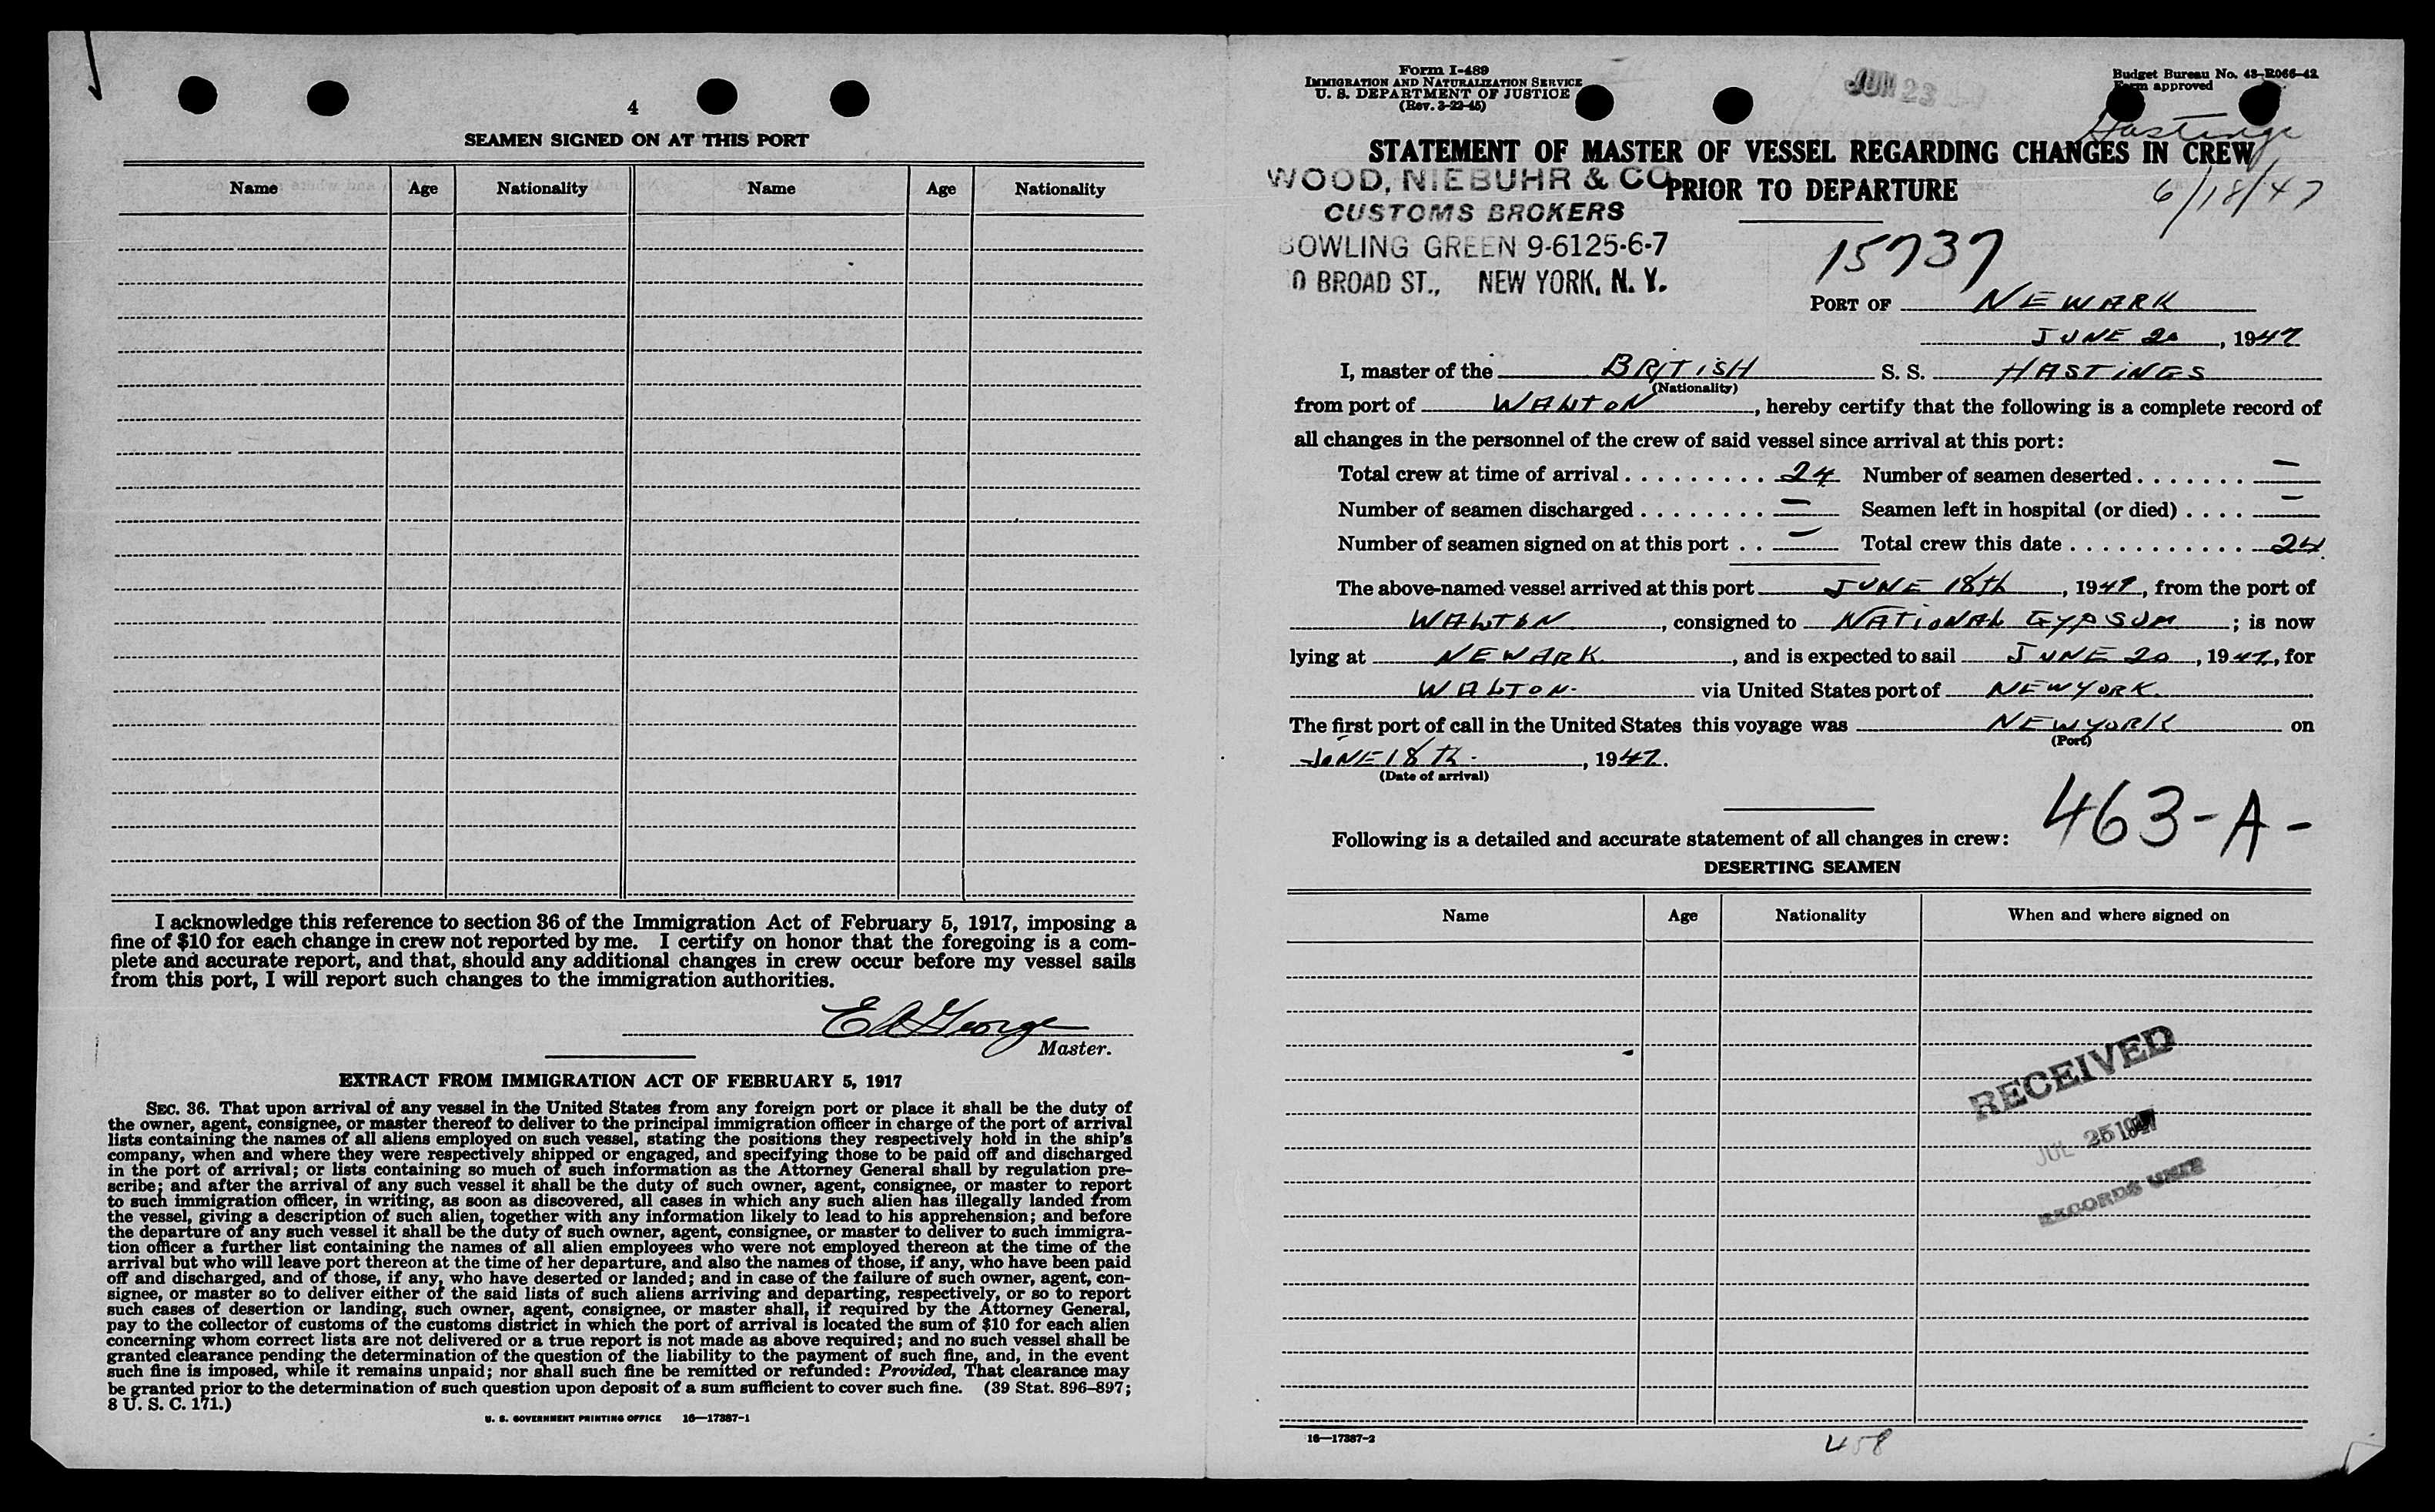 4
SEAMEN SIGNED ON AT THIS PORT
Name Age Nationality Name Age Nationality
I acknowledge this reference to section 36 of the Immigration Act of February 5, 1917, imposing a
fine of $10 for each change in crew not reported by me. I certify on honor that the foregoing is a com-
plete and accurate report, and that, should any additional changes in crew occur before my vessel sails
from this port, I will report such changes to the immigration authorities.
E A George
Master.
EXTRACT FROM IMMIGRATION ACT OF FEBRUARY 5, 1917
SEC. 36. That upon arrival of any vessel in the United States from any foreign port or place it shall be the duty of
the owner, agent, consignee, or master thereof to deliver to the principal immigration officer in charge of the port of arrival
lists containing the names of all aliens employed on such vessel, stating the positions they respectively hold in the ship's
company, when and where they were respectively shipped or engaged, and specifying those to be paid off and discharged
in the port of arrival; or lists containing so much of such information as the Attorney General shall by regulation pre-
scribe; and after the arrival of any such vessel it shall be the duty of such owner, agent, consignee, or master to report
to such immigration officer, in writing, as soon as discovered, all cases in which any such alien has illegally landed from
the vessel, giving a description of such alien, together with any information likely to lead to his apprehension; and before
the departure of any such vessel it shall be the duty of such owner, agent, consignee, or master to deliver to such immigra-
tion officer a further list containing the names of all alien employees who were not employed thereon at the time of the
arrival but who will leave port thereon at the time of her departure, and also the names of those, if any, who have been paid
off and discharged, and of those, if any, who have deserted or landed; and in case of the failure of such owner, agent, con-
signee, or master so to deliver either of the said lists of such aliens arriving and departing, respectively, or so to report
such cases of desertion or landing, such owner, agent, consignee, or master shall, if required by the Attorney General,
pay to the collector of customs of the customs district in which the port of arrival is located the sum of $10 for each alien
concerning whom correct lists are not delivered or a true report is not made as above required; and no such vessel shall be
granted clearance pending the determination of the question of the liability to the payment of such fine, and, in the event
such fine is imposed, while it remains unpaid; nor shall such fine be remitted or refunded: Provided, That clearance may
be granted prior to the determination of such question upon deposit of a sum sufficient to cover such fine. (39 Stat. 896–897;
8 U. S. C. 171.)
U. S. GOVERNMENT PRINTING OFFICE 16—17387-1
Form I-489
IMMIGRATION AND NATURALIZATION SERVICE
U. S. DEPARTMENT OF JUSTICE
(Rev. 3-22-45)
JUN 23
Budget Bureau No. 43-R066-42
Form approved
Hastings
STATEMENT OF MASTER OF VESSEL REGARDING CHANGES IN CREW
PRIOR TO DEPARTURE
6/18/47
WOOD, NIEBUHR & CO
CUSTOMS BROKERS
BOWLING GREEN 9-6125-6-7
0 BROAD ST., NEW YORK, N. Y.
15737
PORT OF NEWARK
JUNE 20, 1947
I, master of the BRITISH S. S. HASTINGS
(Nationality)
from port of WALTON, hereby certify that the following is a complete record of
all changes in the personnel of the crew of said vessel since arrival at this port:
Total crew at time of arrival . . . . . . . . . 24 Number of seamen deserted . . . . . . . —
Number of seamen discharged . . . . . . . . — Seamen left in hospital (or died) . . . . —
Number of seamen signed on at this port . . — Total crew this date . . . . . . . . . . . . 24
The above-named vessel arrived at this port JUNE 18th, 1947, from the port of
WALTON, consigned to NATIONAL GYPSUM; is now
lying at NEWARK, and is expected to sail JUNE 20, 1947, for
WALTON via United States port of NEWYORK
The first port of call in the United States this voyage was NEWYORK on
(Port)
JUNE 18th, 1947.
(Date of arrival)
463-A-
Following is a detailed and accurate statement of all changes in crew:
DESERTING SEAMEN
Name Age Nationality When and where signed on
RECEIVED
JUL 25 1947
RECORDS UNIT
16—17387-2
458